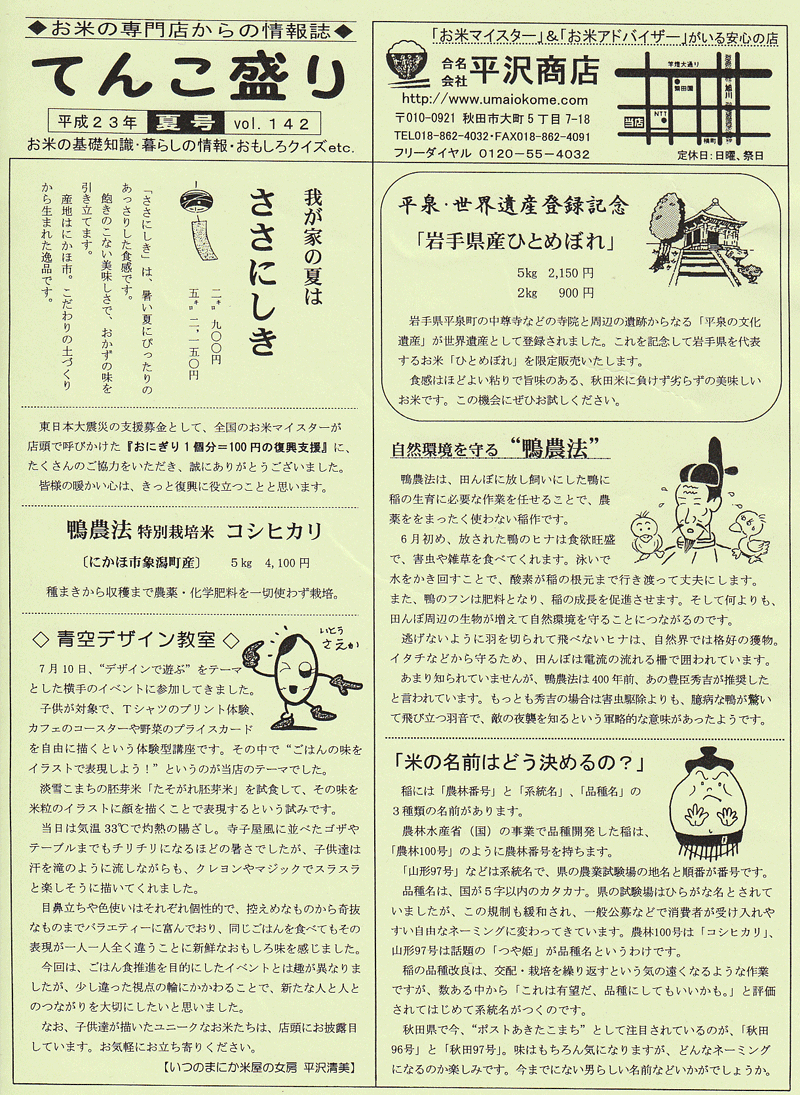 ◆お米の専門店からの情報誌◆
てんこ盛り
平成23年 夏号 vol.142
お米の基礎知識・暮らしの情報・おもしろクイズetc.
「お米マイスター」&「お米アドバイザー」がいる安心の店
合名会社 平沢商店
http://www.umaiokome.com
〒010-0921 秋田市大町5丁目7-18
TEL018-862-4032・FAX018-862-4091
フリーダイヤル 0120-55-4032
羊燈大通り
菊田園
旭川
NTT
当店
横町
定休日:日曜、祭日
我が家の夏は
ささにしき
二キロ 九〇〇円
五キロ 二、一五〇円
「ささにしき」は、暑い夏にぴったりの
あっさりした食感です。
飽きのこない美味しさで、おかずの味を
引き立てます。
産地はにかほ市。こだわりの土づくり
から生まれた逸品です。
東日本大震災の支援募金として、全国のお米マイスターが
店頭で呼びかけた『おにぎり1個分=100円の復興支援』に、
たくさんのご協力をいただき、誠にありがとうございました。
皆様の暖かい心は、きっと復興に役立つことと思います。
鴨農法 特別栽培米 コシヒカリ
〔にかほ市象潟町産〕 5kg 4,100円
種まきから収穫まで農薬・化学肥料を一切使わず栽培。
◇ 青空デザイン教室 ◇
いとう
さえか
7月10日、“デザインで遊ぶ”をテーマ
とした横手のイベントに参加してきました。
子供が対象で、Tシャツのプリント体験、
カフェのコースターや野菜のプライスカード
を自由に描くという体験型講座です。その中で“ごはんの味を
イラストで表現しよう！”というのが当店のテーマでした。
淡雪こまちの胚芽米「たそがれ胚芽米」を試食して、その味を
米粒のイラストに顔を描くことで表現するという試みです。
当日は気温33℃で灼熱の陽ざし。寺子屋風に並べたゴザや
テーブルまでもチリチリになるほどの暑さでしたが、子供達は
汗を滝のように流しながらも、クレヨンやマジックでスラスラ
と楽しそうに描いてくれました。
目鼻立ちや色使いはそれぞれ個性的で、控えめなものから奇抜
なものまでバラエティーに富んでおり、同じごはんを食べてもその
表現が一人一人全く違うことに新鮮なおもしろ味を感じました。
今回は、ごはん食推進を目的にしたイベントとは趣が異なりま
したが、少し違った視点の輪にかかわることで、新たな人と人と
のつながりを大切にしたいと思いました。
なお、子供達が描いたユニークなお米たちは、店頭にお披露目
しています。お気軽にお立ち寄りください。
【いつのまにか米屋の女房 平沢清美】
平泉・世界遺産登録記念
「岩手県産ひとめぼれ」
5kg 2,150円
2kg 900円
岩手県平泉町の中尊寺などの寺院と周辺の遺跡からなる「平泉の文化
遺産」が世界遺産として登録されました。これを記念して岩手県を代表
するお米「ひとめぼれ」を限定販売いたします。
食感はほどよい粘りで旨味のある、秋田米に負けず劣らずの美味しい
お米です。この機会にぜひお試しください。
自然環境を守る “鴨農法”
鴨農法は、田んぼに放し飼いにした鴨に
稲の生育に必要な作業を任せることで、農
薬ををまったく使わない稲作です。
6月初め、放された鴨のヒナは食欲旺盛
で、害虫や雑草を食べてくれます。泳いで
水をかき回すことで、酸素が稲の根元まで行き渡って丈夫にします。
また、鴨のフンは肥料となり、稲の成長を促進させます。そして何よりも、
田んぼ周辺の生物が増えて自然環境を守ることにつながるのです。
逃げないように羽を切られて飛べないヒナは、自然界では格好の獲物。
イタチなどから守るため、田んぼは電流の流れる柵で囲われています。
あまり知られていませんが、鴨農法は400年前、あの豊臣秀吉が推奨した
と言われています。もっとも秀吉の場合は害虫駆除よりも、臆病な鴨が驚い
て飛び立つ羽音で、敵の夜襲を知るという軍略的な意味があったようです。
「米の名前はどう決めるの？」
稲には「農林番号」と「系統名」、「品種名」の
3種類の名前があります。
農林水産省（国）の事業で品種開発した稲は、
「農林100号」のように農林番号を持ちます。
「山形97号」などは系統名で、県の農業試験場の地名と順番が番号です。
品種名は、国が5字以内のカタカナ。県の試験場はひらがな名とされて
いましたが、この規制も緩和され、一般公募などで消費者が受け入れや
すい自由なネーミングに変わってきています。農林100号は「コシヒカリ」、
山形97号は話題の「つや姫」が品種名というわけです。
稲の品種改良は、交配・栽培を繰り返すという気の遠くなるような作業
ですが、数ある中から「これは有望だ、品種にしてもいいかも。」と評価
されてはじめて系統名がつくのです。
秋田県で今、“ポストあきたこまち”として注目されているのが、「秋田
96号」と「秋田97号」。味はもちろん気になりますが、どんなネーミング
になるのか楽しみです。今までにない男らしい名前などいかがでしょうか。